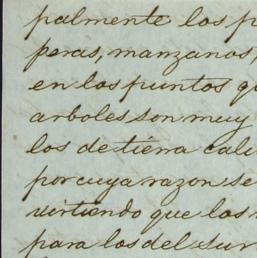 palmente los p
peras, manzanos,
en los puntos qu
arboles son muy
los de tierra cali
por cuya razon se
virtiendo que los
para los del sur